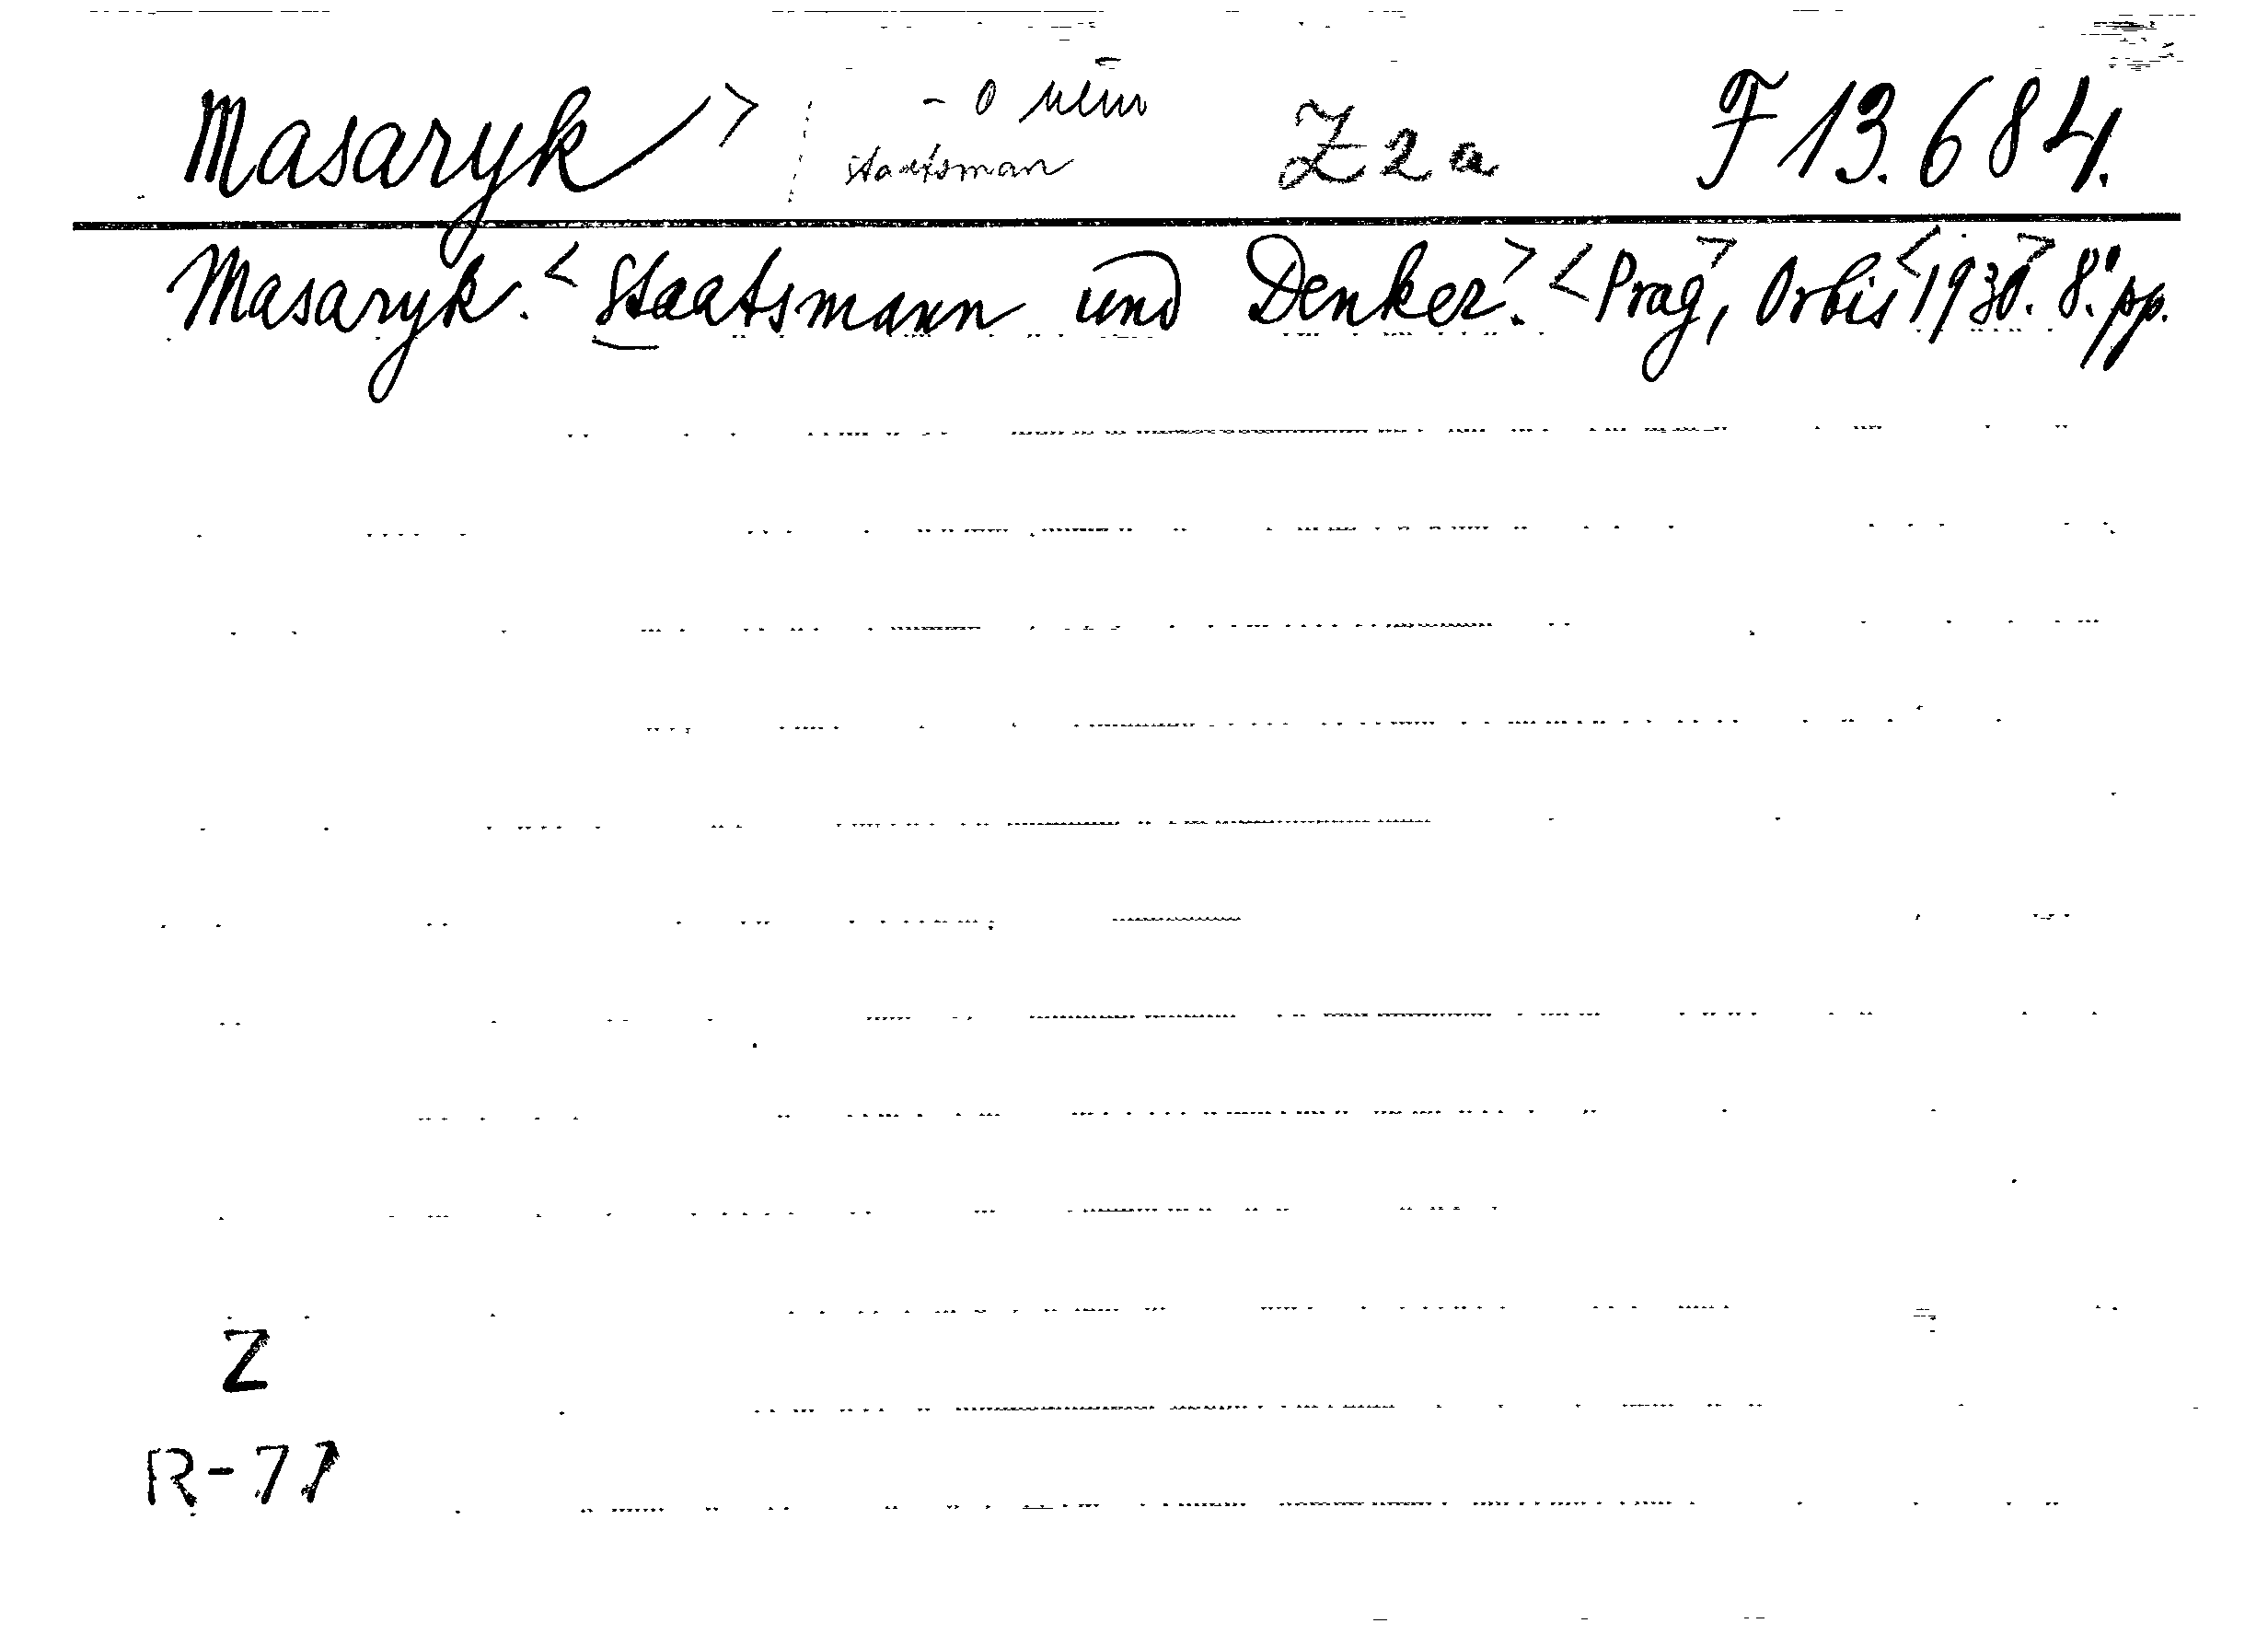 Masaryk > - o něm staatsman Z 2 a F 13.684.
Masaryk. < Staatsmann und Denker. > < Prag >, Orbis < 1930. > 8°. pp.
Z
R-71